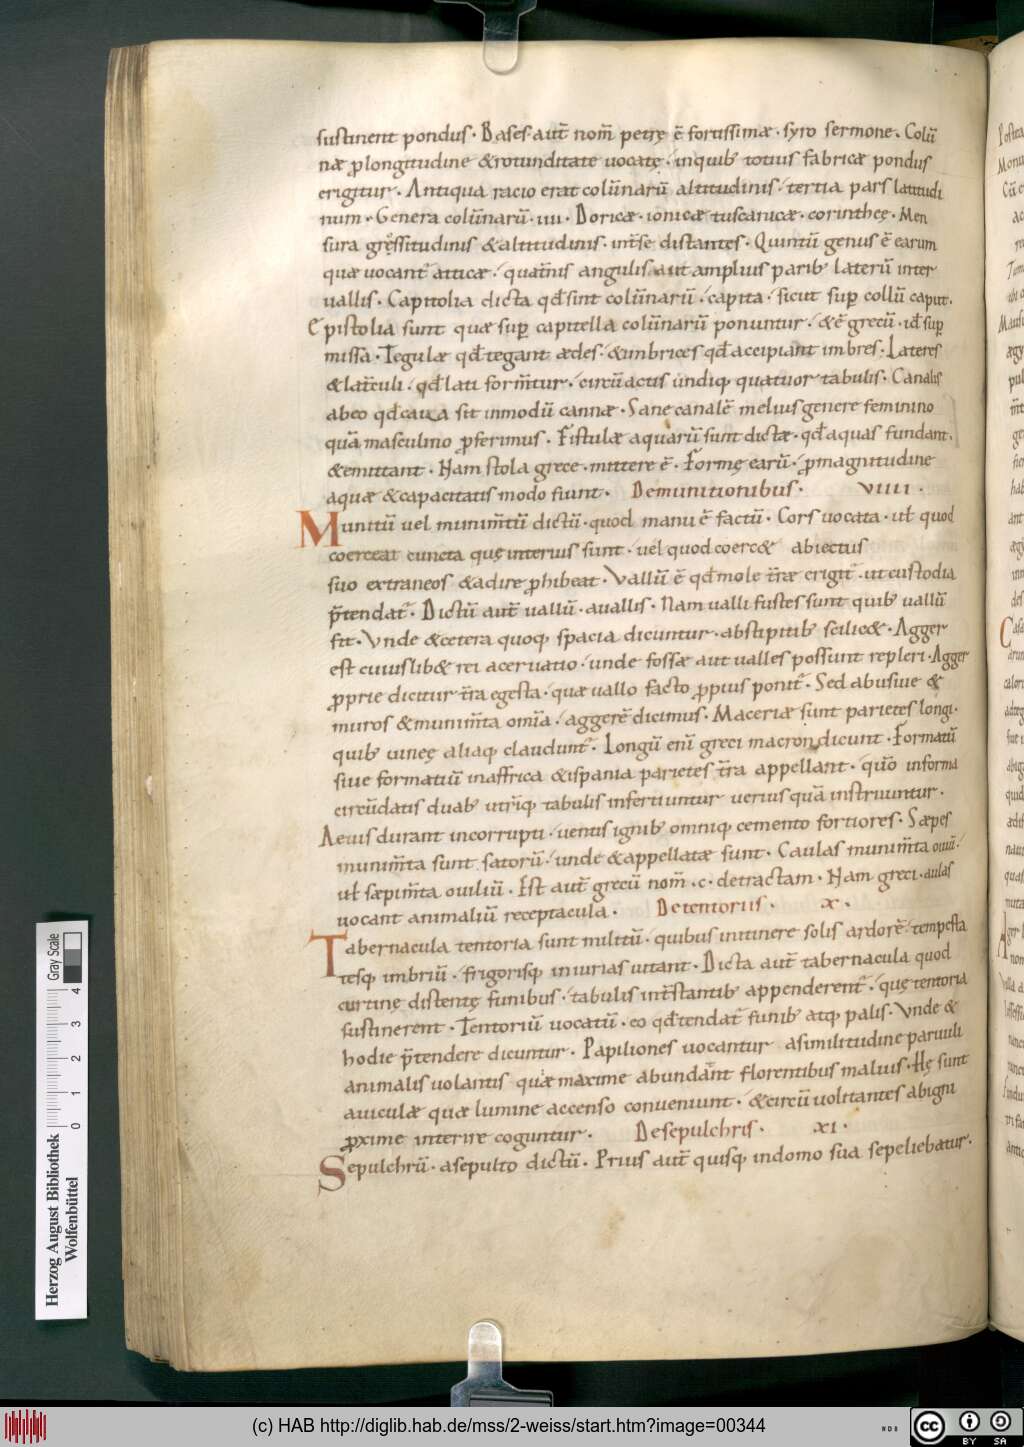 sustinent pondus · Bases · aut̄ nom̄ petrę ē fortissimæ · syro sermone · Colū
næ p̱longitudine &rotunditate uocatę · inquib; totius fabricæ pondus
erigitur · Antiqua racio erat colūnarū altitudinis · tertia pars latitudi
num · Genera colūnarū · iiii · Doricæ · ionicæ tuscanicæ · corintheę · Men
sura gręssitudinis &altitudinis · int̄se distantes · Quintū genus ē earum
quæ uocant᷑ atticæ · quat̄nis angulis aut amplius parib; laterū inter
uallis · Capitolia dicta qđ sint colūnarū · capita · sicut suꝑ collū caput ·
Epistolia sunt quæ suꝑ capitella colūnarū ponuntur · &ē grecū · iđ suꝑ
missa · Tegulæ qđ tegant ædes · &imbrices qđ accipiant imbres · Lateres
&lat̄culi · qđ lati form̄tur · circūactis undiq; quatuor tabulis · Canalis
abeo qđ caua sit inmodū cannæ · Sane canalē melius genere feminino
quā masculino ꝓferimus · Fistulæ aquarū sunt dictæ · qđ aquas fundant ·
&emittant · Nam stola grece · mittere ē · Formę earū · ꝓmagnitudine
aquæ &capacitatis modo fiunt · Demunitionibus · VIIII ·
Munitū uel munim̄tū dictū · quod manu ē factū · Cors uocata · ul̄ quod
coerceat cuncta quę interius sunt · uel quod coerc& abiectus
suo extraneos &adire ꝓhibeat · Vallū ē qđ mole t̄ræ erigit᷑ · ut custodia
p̄tendat᷑ · Dictū aut̄ uallū · auallis · Nam ualli fustes sunt quib; uallū
fit · Vnde &cetera quoq; spacia dicuntur · abstipitib; scilic& · Agger
est cuiuslib& rei aceruatio · unde fossæ aut ualles possunt repleri · Agger
ꝓprie dicitur t̄ra egesta · quæ uallo facto ꝓpius ponit᷑ · Sed abusiue &
muros &munim̄ta om̄ia · aggerē dicimus · Maceriæ sunt parietes longi ·
quib; uineę aliaq; claudunt᷑ · Longū enī greci macron dicunt · Formatū
siue formatiū inaffrica &ispania parietes t̄ra appellant · qūo informa
circūdatis duab; utrīq; tabulis infertiuntur uerius quā instruuntur ·
Aeuis durant incorrupti · uentis ignib; omniq; cemento fortiores · Sæpes
munim̄ta sunt satorū · unde &appellatæ sunt · Caulas munim̄ta ouiū ·
ul̄ sæpim̄ta ouiliū · Est aut̄ grecū nom̄ · c · detractam · Nam greci · aulas
uocant animaliū receptacula · Detentoriis · X ·
Tabernacula tentoria sunt militū · quibus initinere solis ardorē · tempesta
tesq; imbriū · frigorisq; iniurias uitant · Dicta aut̄ tabernacula quod
curtinę distentę funibus · tabulis int̄stantib; appenderent᷑ · quę tentoria
sustinerent · Tentoriū uocatū · eo qđ tendat᷑ funib; atq; palis · Vnde &
hodie p̄tendere dicuntur · Papiliones uocantur asimilitudine paruuli
animalis uolantis quæ maxime abundant florentibus maluis · Hę sunt
auiculæ quæ lumine accenso conueniunt · &circū uolitantes abigni
ꝓxime interire coguntur · Desepulchris · XI ·
Sepulchrū · asepulto dictū · Prius aut̄ quisq; indomo sua sepeliebatur ·
Herzog August Bibliothek
Wolfenbüttel
Gray Scale
0 1 2 3 4
(c) HAB http://diglib.hab.de/mss/2-weiss/start.htm?image=00344
cc BY SA